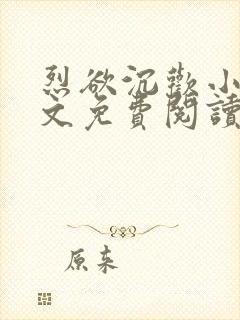 烈欲沉歡小
文免費閱讀
原来